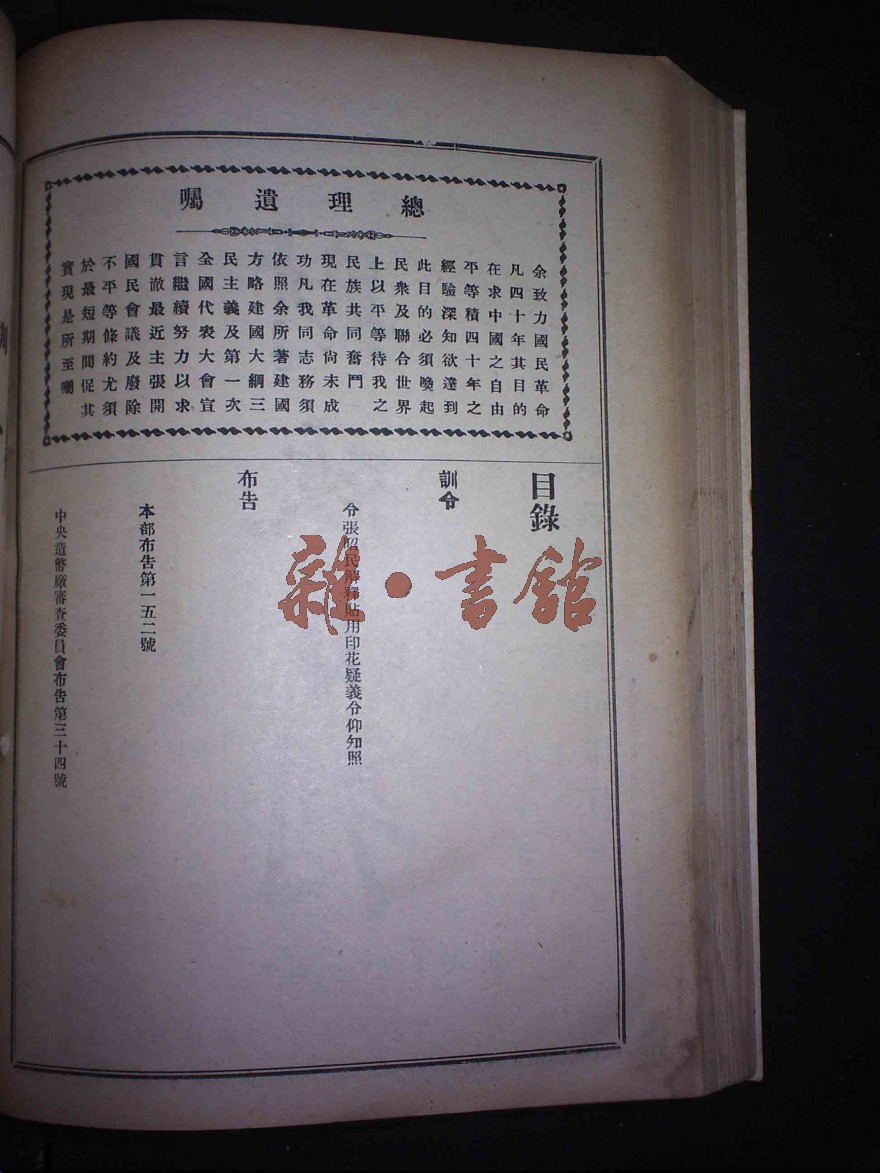 總理遺囑
余致力國民革命
凡四十年其目的
在求中國之自由
平等積四十年之
經驗深知欲達到
此目的必須喚起
民衆及聯合世界
上以平等待我之
民族共同奮鬥
現在革命尙未成
功凡我同志務須
依照余所著建國
方略建國大綱三
民主義及第一次
全國代表大會宣
言繼續努力以求
貫澈最近主張開
國民會議及廢除
不平等條約尤須
於最短期間促其
實現是所至囑
目錄
訓令
令張昭民解釋貼用印花疑義令仰知照
布告
本部布告第一五二號
中央造幣廠審查委員會布告第三十四號
雜·書館